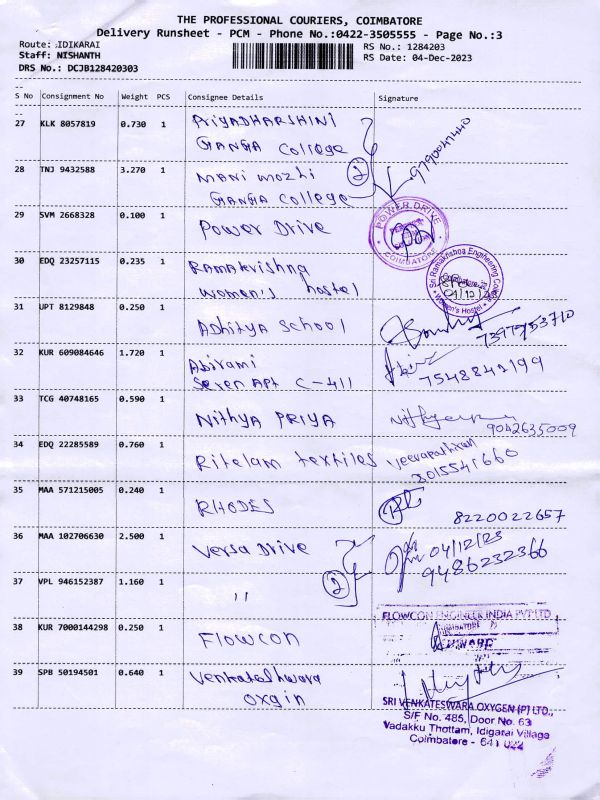 THE PROFESSIONAL COURIERS, COIMBATORE
Delivery Runsheet - PCM - Phone No.:0422-3505555 - Page No.:3
Route: IDIKARAI
RS No.: 1284203
Staff: NISHANTH
RS Date: 04-Dec-2023
DRS No.: DCJB128420303
S No Consignment No Weight PCS Consignee Details Signature
27 KLK 8057819 0.730 1 Priyadharshini
GANGA College
28 TNJ 9432588 3.270 1 Mani mozhi
GANGA college
2
29 SVM 2668328 0.100 1 Power Drive
POWER DRIVE
COIMBATORE
30 EDQ 23257115 0.235 1 Ramakrishna
women's hostel
Sri Ramakrishna Engineering College
Women's Hostel
31 UPT 8129848 0.250 1 Adhitya School
7397753710
32 KUR 609084646 1.720 1 Abirami
Seven Apt C-411
7548842199
33 TCG 40748165 0.590 1 Nithya Priya
9042635009
34 EDQ 22285589 0.760 1 Ritelam textiles
8015541660
35 MAA 571215005 0.240 1 RHODES
8220022657
36 MAA 102706630 2.500 1 Versa Drive
04/12/23
9486232366
37 VPL 946152387 1.160 1 ''
2
38 KUR 7000144298 0.250 1 Flowcon
FLOWCON ENGINEER INDIA PVT LTD
39 SPB 50194501 0.640 1 Venkateshwara
oxgin
SRI VENKATESWARA OXYGEN (P) LTD.,
S/F No. 485, Door No. 63
Vadakku Thottam, Idigarai Village
Coimbatore - 641 022